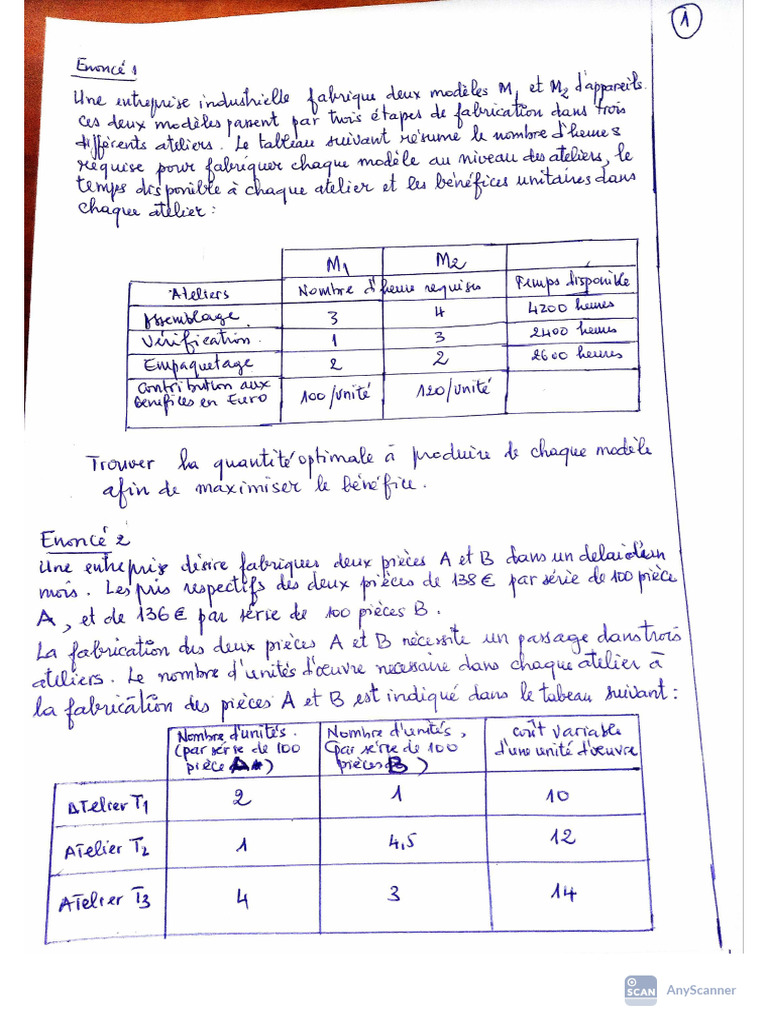 1
Enoncé 1
Une entreprise industrielle fabrique deux modèles M1 et M2 d'appareils.
Ces deux modèles passent par trois étapes de fabrication dans trois
différents ateliers. Le tableau suivant résume le nombre d'heures
requise pour fabriquer chaque modèle au niveau des ateliers, le
temps disponible à chaque atelier et les bénéfices unitaires dans
chaque atelier :
M1 M2
Ateliers Nombre d'heure requises Temps disponible
Assemblage 3 4 4200 heures
Vérification 1 3 2400 heures
Empaquetage 2 2 2600 heures
Contribution aux bénéfices en Euro 100/unité 120/unité
Trouver la quantité optimale à produire de chaque modèle
afin de maximiser le bénéfice.
Enoncé 2
Une entreprise désire fabriques deux pièces A et B dans un delai d'un
mois. Les prix respectifs des deux pièces de 138€ par série de 100 pièce
A, et de 136€ par série de 100 pièces B.
La fabrication des deux pièces A et B nécessite un passage dans trois
ateliers. Le nombre d'unités d'œuvre necessaire dans chaque atelier à
la fabrication des pièces A et B est indiqué dans le tabeau suivant :
Nombre d'unités. (par série de 100 pièce A) Nombre d'unités, (par série de 100 pièces B) coût variable d'une unité d'œuvre
Atelier T1 2 1 10
Atelier T2 1 4,5 12
Atelier T3 4 3 14
SCAN AnyScanner